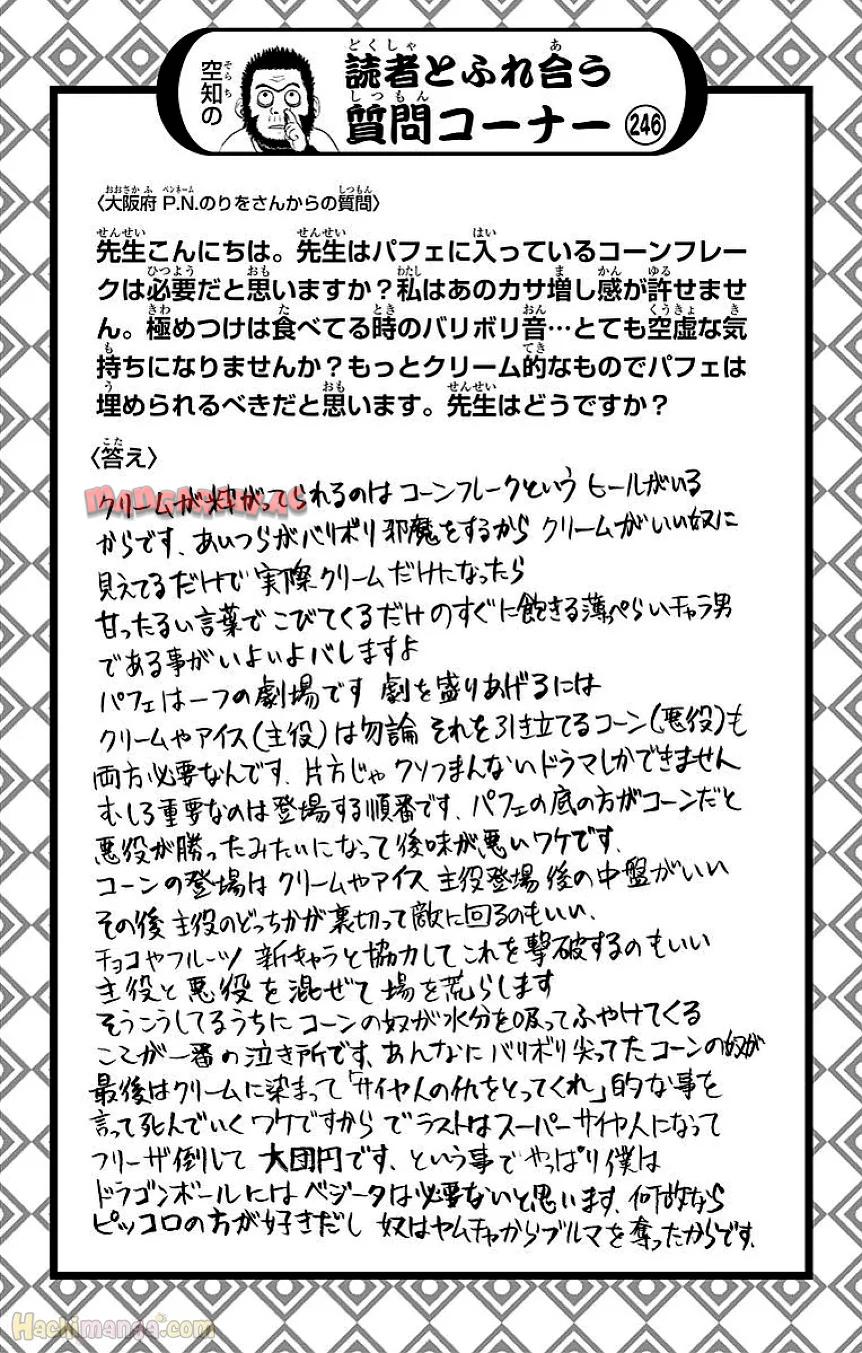 空知の
読者とふれ合う
質問コーナー 246
〈大阪府 P.N.のりをさんからの質問〉
先生こんにちは。先生はパフェに入っているコーンフレー
クは必要だと思いますか？私はあのカサ増し感が許せませ
ん。極めつけは食べてる時のバリボリ音…とても空虚な気
持ちになりませんか？もっとクリーム的なものでパフェは
埋められるべきだと思います。先生はどうですか？
〈答え〉
クリームが輝がってられるのは コーンフレークという ヒールがいる
からです、あいつらがバリボリ邪魔をするから クリームがいい奴に
見えてるだけで 実際クリームだけになったら
甘ったるい言葉で こびてくるだけ のすぐに飽きる薄っぺらいチャラ男
である事がいよいよバレますよ
パフェは一つの劇場です 劇を盛りあげるには
クリームやアイス(主役)は勿論 それを引き立てるコーン(悪役)も
両方必要なんです、片方じゃ クソつまんないドラマしかできません
むしろ重要なのは登場する順番です、パフェの底の方がコーンだと
悪役が勝ったみたいになって後味が悪いワケです、
コーンの登場は クリームやアイス 主役登場 後の中盤がいい
その後 主役のどっちかが裏切って敵に回るのもいい、
チョコやフルーツ 新キャラと協力して これを撃破するのもいい
主役と悪役を混ぜて場を荒らします
そうこうしてるうちに コーンの奴が水分を吸ってふやけてくる
ここが一番の泣き所です、あんなに バリボリ尖ってた コーンの奴が
最後はクリームに染まって「サイヤ人の仇をとってくれ」的な事を
言って死んでいくワケですから で ラストはスーパーサイヤ人になって
フリーザ倒して 大団円です、という事で やっぱり僕は
ドラゴンボールには ベジータは必要ないと思います、何故なら
ピッコロの方が好きだし 奴はヤムチャからブルマを奪ったからです、
Hachimanga.com